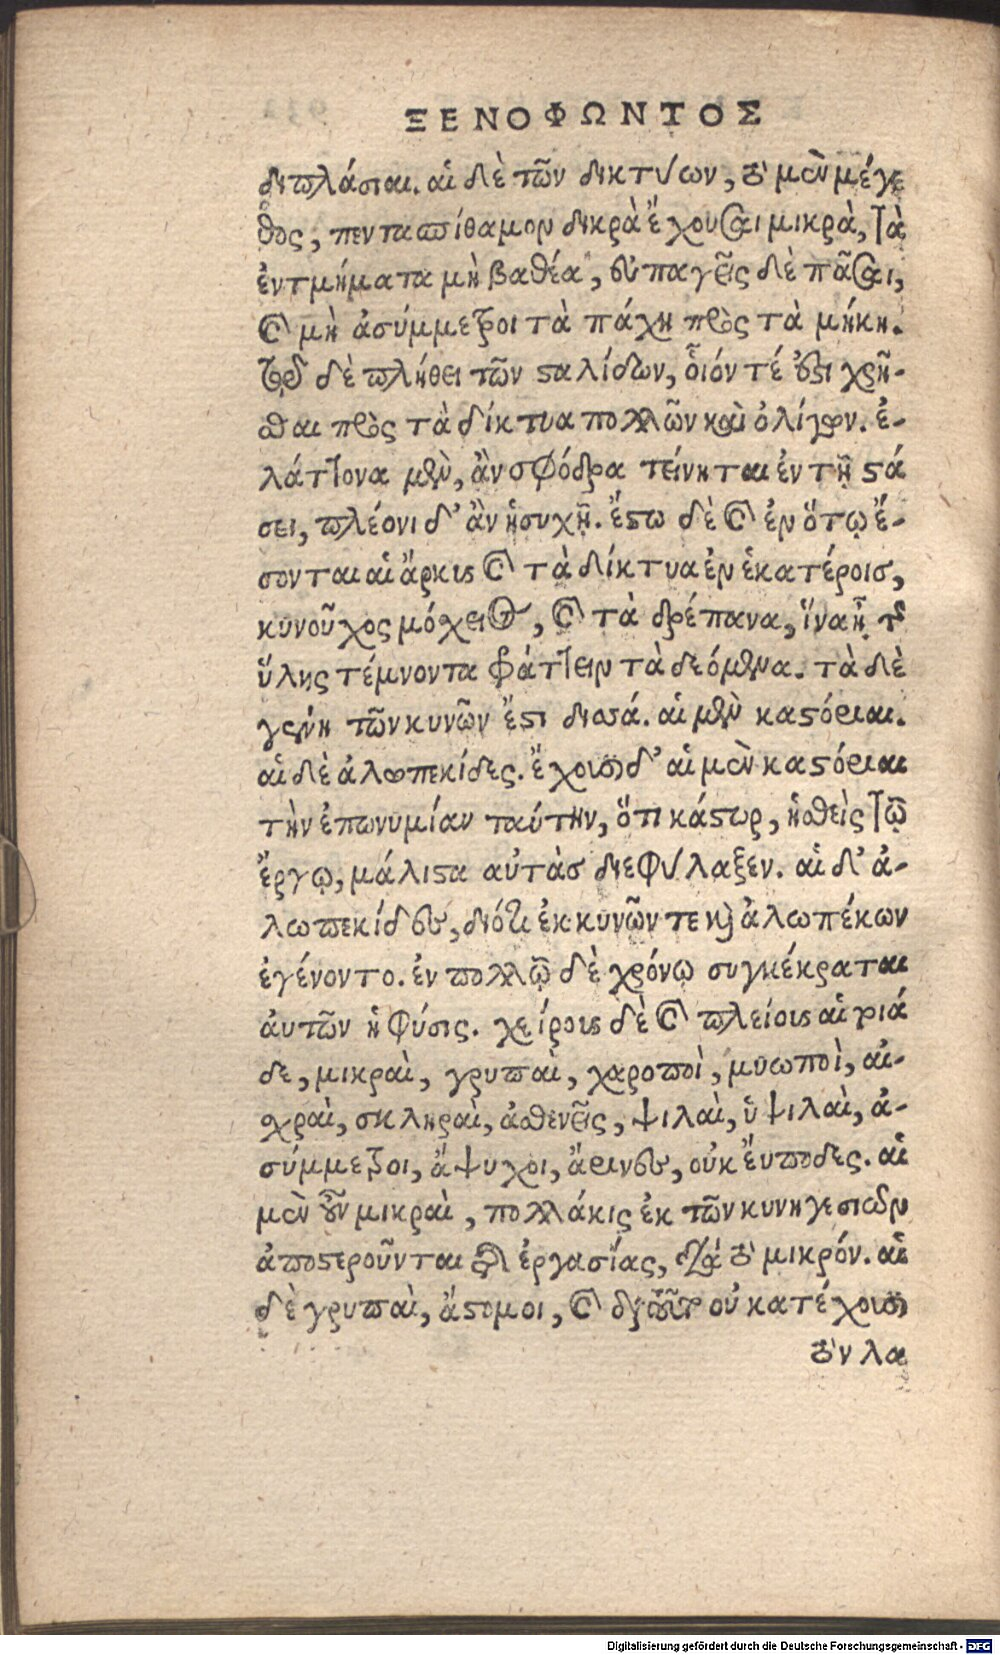 ΞΕΝΟΦΩΝΤΟΣ
διπλάσιαι. αἱ δὲ τῶν δικτύων, τὸ μὲν μέγε
θος, πεντασπίθαμον δικρὰ ἔχουσαι μικρὰ, τὰ
ἐντμήματα μὴ βαθέα, εὐπαγεῖς δὲ πᾶσαι,
καὶ μὴ ἀσύμμετροι τὰ πάχη πρὸς τὰ μήκη.
τῷ δὲ πλήθει τῶν σαλίδων, οἷόν τέ ἐστι χρῆ-
σθαι πρὸς τὰ δίκτυα πολλῶν καὶ ὀλίγων. ἐ-
λάττονα μὲν, ἂν σφόδρα τείνηται ἐν τῇ στά
σει, πλέονι δ' ἂν ἡσυχῇ. ἔστω δὲ καὶ ἐν ὅτῳ ἔ-
σονται αἱ ἄρκυς καὶ τὰ δίκτυα ἐν ἑκατέροισ,
κυνοῦχος μόχειος, καὶ τὰ δρέπανα, ἵνα ᾖ τῆς
ὕλης τέμνοντα φράττειν τὰ δεόμενα. τὰ δὲ
γένη τῶν κυνῶν ἔστι δισσά. αἱ μὲν καστόριαι.
αἱ δὲ ἀλωπεκίδες. ἔχουσι δ' αἱ μὲν καστόριαι
τὴν ἐπωνυμίαν ταύτην, ὅτι κάστωρ, ἡσθεὶς τῷ
ἔργῳ, μάλιστα αὐτὰσ διεφύλαξεν. αἱ δ' ἀ-
λωπεκίδες, διότι ἐκ κυνῶν τε καὶ ἀλωπέκων
ἐγένοντο. ἐν πολλῷ δὲ χρόνῳ συγκέκραται
ἀυτῶν ἡ φύσις. χείρους δὲ καὶ πλείους αἱ τοιά
δε, μικραὶ, γρυπαὶ, χαροποὶ, μυωποὶ, αἰ-
σχραὶ, σκληραὶ, ἀσθενεῖς, ψιλαὶ, ὑψιλαὶ, ἀ-
σύμμετροι, ἄψυχοι, ἄρινες, οὐκ ἔυποδες. αἱ
μὲν οὖν μικραὶ, πολλάκις ἐκ τῶν κυνηγεσιῶν
ἀποστεροῦνται τῆς ἐργασίας, διὰ τὸ μικρόν. αἱ
δὲ γρυπαὶ, ἄστομοι, καὶ διὰ τοῦτο οὐ κατέχουσι
τὸν λα
Digitalisierung gefördert durch die Deutsche Forschungsgemeinschaft - DFG